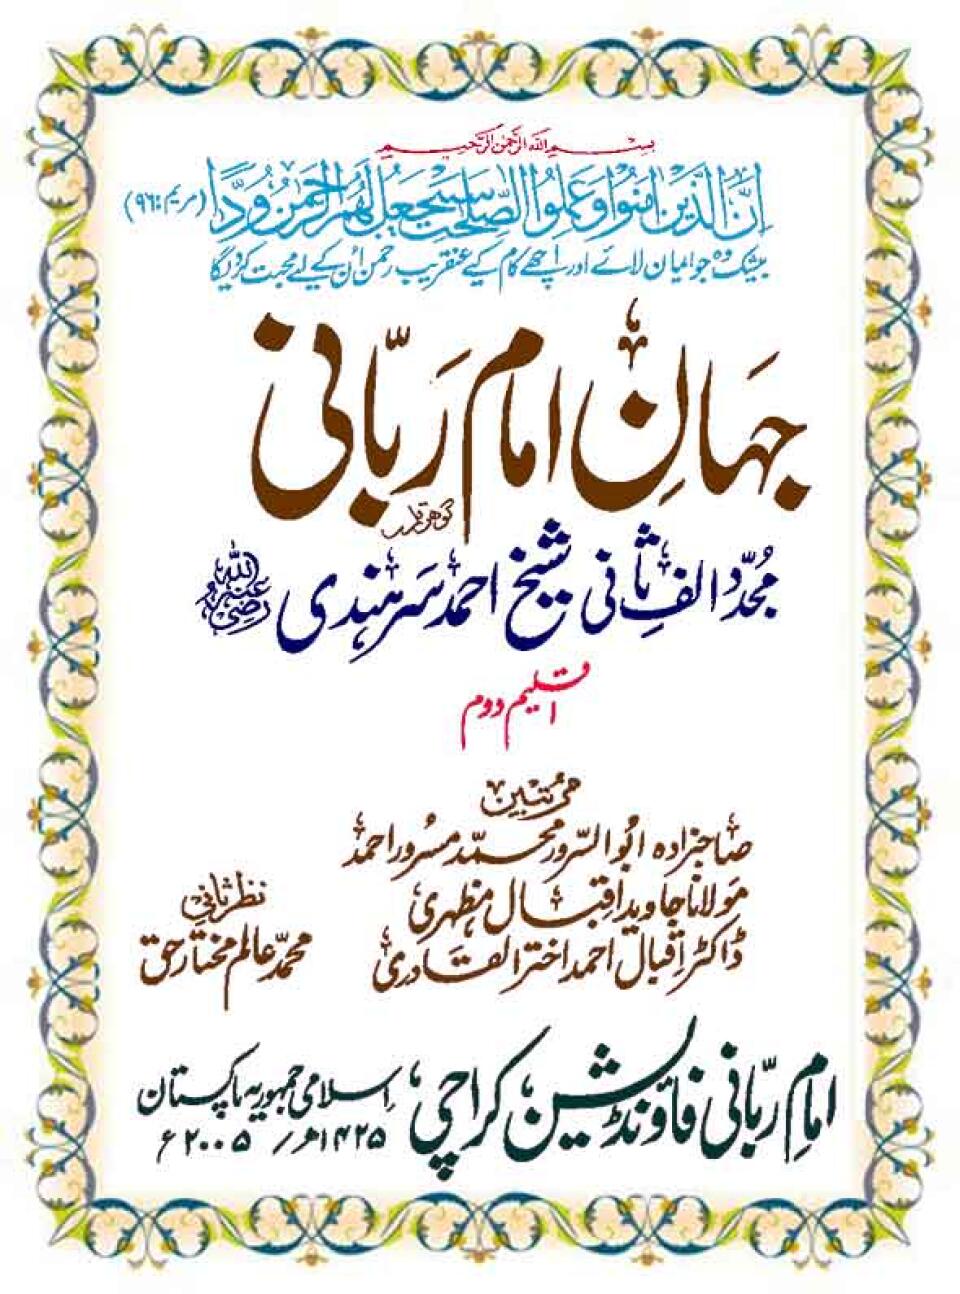 بسم الله الرحمن الرحیم
اِنَّ الَّذِیْنَ اٰمَنُوْا وَعَمِلُوا الصّٰلِحٰتِ سَیَجْعَلُ لَهُمُ الرَّحْمٰنُ وُدًّا (مریم:۹۶)
بیشک وہ جو ایمان لائے اور اچھے کام کیے عنقریب رحمٰن اُن کے لیے محبت کردیگا
جہانِ امام رَبّانی
گوھر قلم
مُجدّد الفِ ثانی شیخ احمد سَرہندی رضی اللہ عنہ
اقلیم دوم
مرتبین
صاحبزادہ ابُوالسّرور محمّد مسرُور احمد
مَولانا جاوید اقبال مظہری
ڈاکٹر اِقبال احمد اختر القادری
نظرِ ثانی
محمّد عالم مختارِ حق
امامِ ربّانی فاؤنڈیشن، کراچی، اِسلامی جمہوریہ پاکستان
۱۴۲۵ھ؍ ۲۰۰۵ء